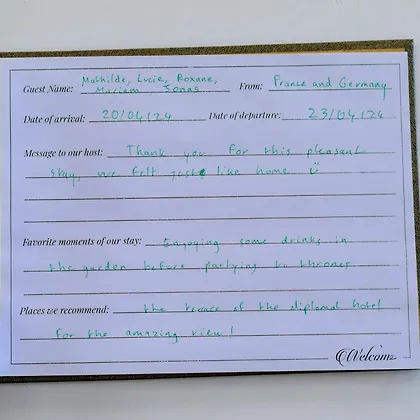 Guest Name: Mathilde, Lucie, Roxane, From: France and Germany
Mariam Jonas
Date of arrival: 20/04/24 Date of departure: 23/04/24
Message to our host: Thank you for this pleasant
stay, we felt just like home
Favorite moments of our stay: Enjoying some drinks in
the garden before partying to throner
Places we recommend: the terace of the diplomat hotel
for the amazing view!
Welcome